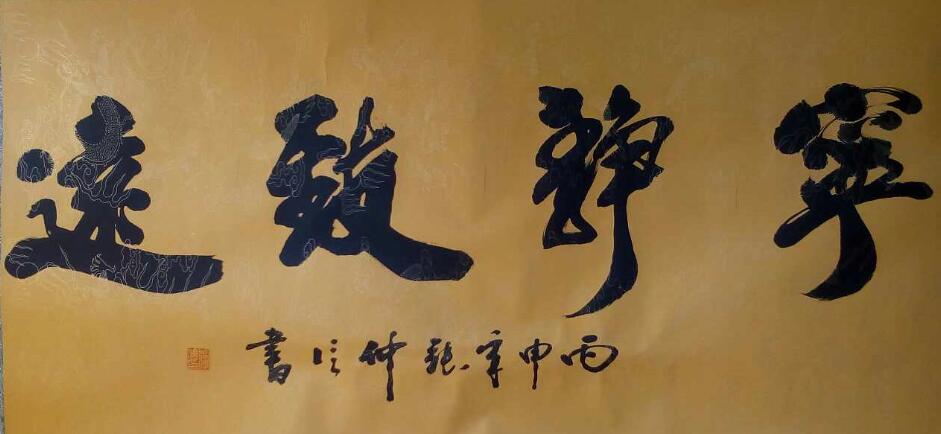 寧靜致遠
丙申年張仲冫書